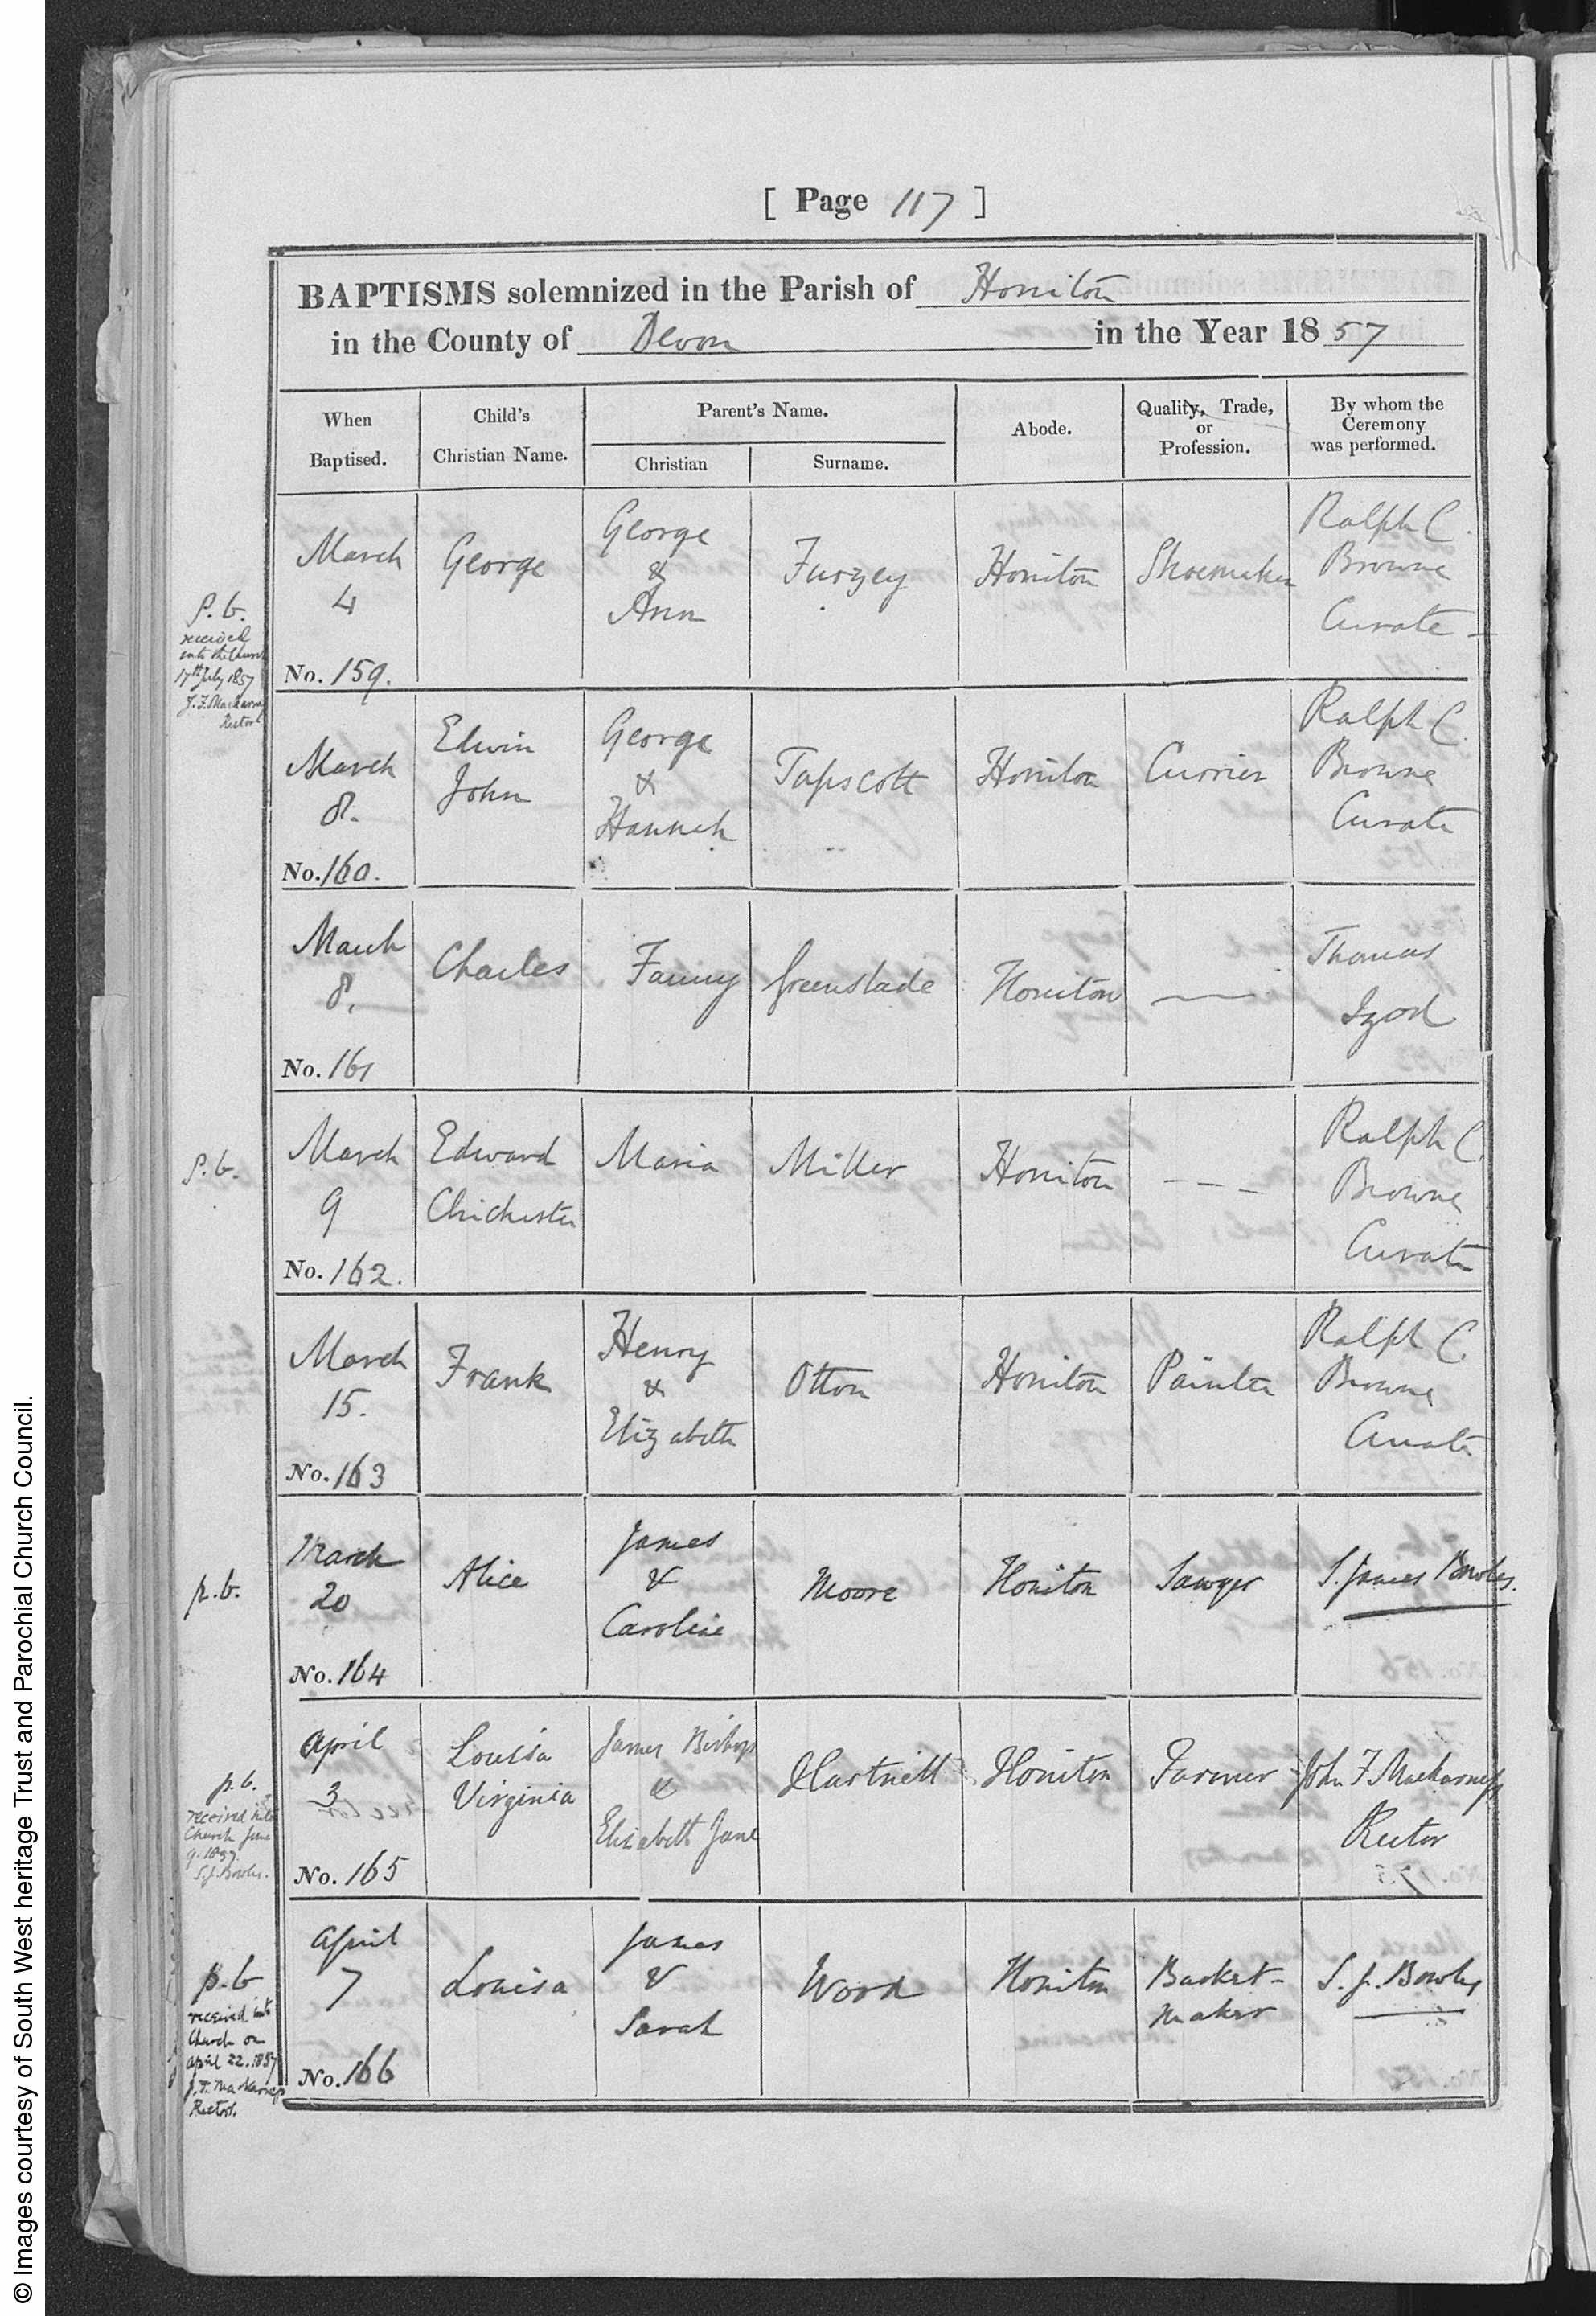 [ Page 117 ]
BAPTISMS solemnized in the Parish of Honiton
in the County of Devon in the Year 1857
When Baptised.
Child's Christian Name.
Parent's Name.
Christian
Surname.
Abode.
Quality, Trade, or Profession.
By whom the Ceremony was performed.
P. b.
received
into the Church
17th July 1857
J. F. Mackarness
Rector
March
4
No. 159.
George
George
&
Ann
Furzey
Honiton
Shoemaker
Ralph C.
Browne
Curate
March
8.
No. 160.
Edwin
John
George
&
Hannah
Tapscott
Honiton
Currier
Ralph C.
Browne
Curate
March
8.
No. 161
Charles
Fanny
Greenslade
Honiton
—
Thomas
Izod
P. b.
March
9
No. 162.
Edward
Chichester
Maria
Miller
Honiton
- - -
Ralph C.
Browne
Curate
March
15.
No. 163
Frank
Henry
&
Elizabeth
Otton
Honiton
Painter
Ralph C.
Browne
Curate
p. b.
March
20
No. 164
Alice
James
&
Caroline
Moore
Honiton
Sawyer
S. James Bowles.
p. b.
received into
Church June
9. 1857.
S. J. Bowles.
April
3
No. 165
Louisa
Virginia
James Bishop
&
Elizabeth Jane
Hartnell
Honiton
Farmer
John F Mackarness
Rector
p. b
received into
Church on
April 22. 1857
J. F. Mackarness
Rector.
April
7
No. 166
Louisa
James
&
Sarah
Wood
Honiton
Basket-
maker
S. J. Bowles
© Images courtesy of South West heritage Trust and Parochial Church Council.